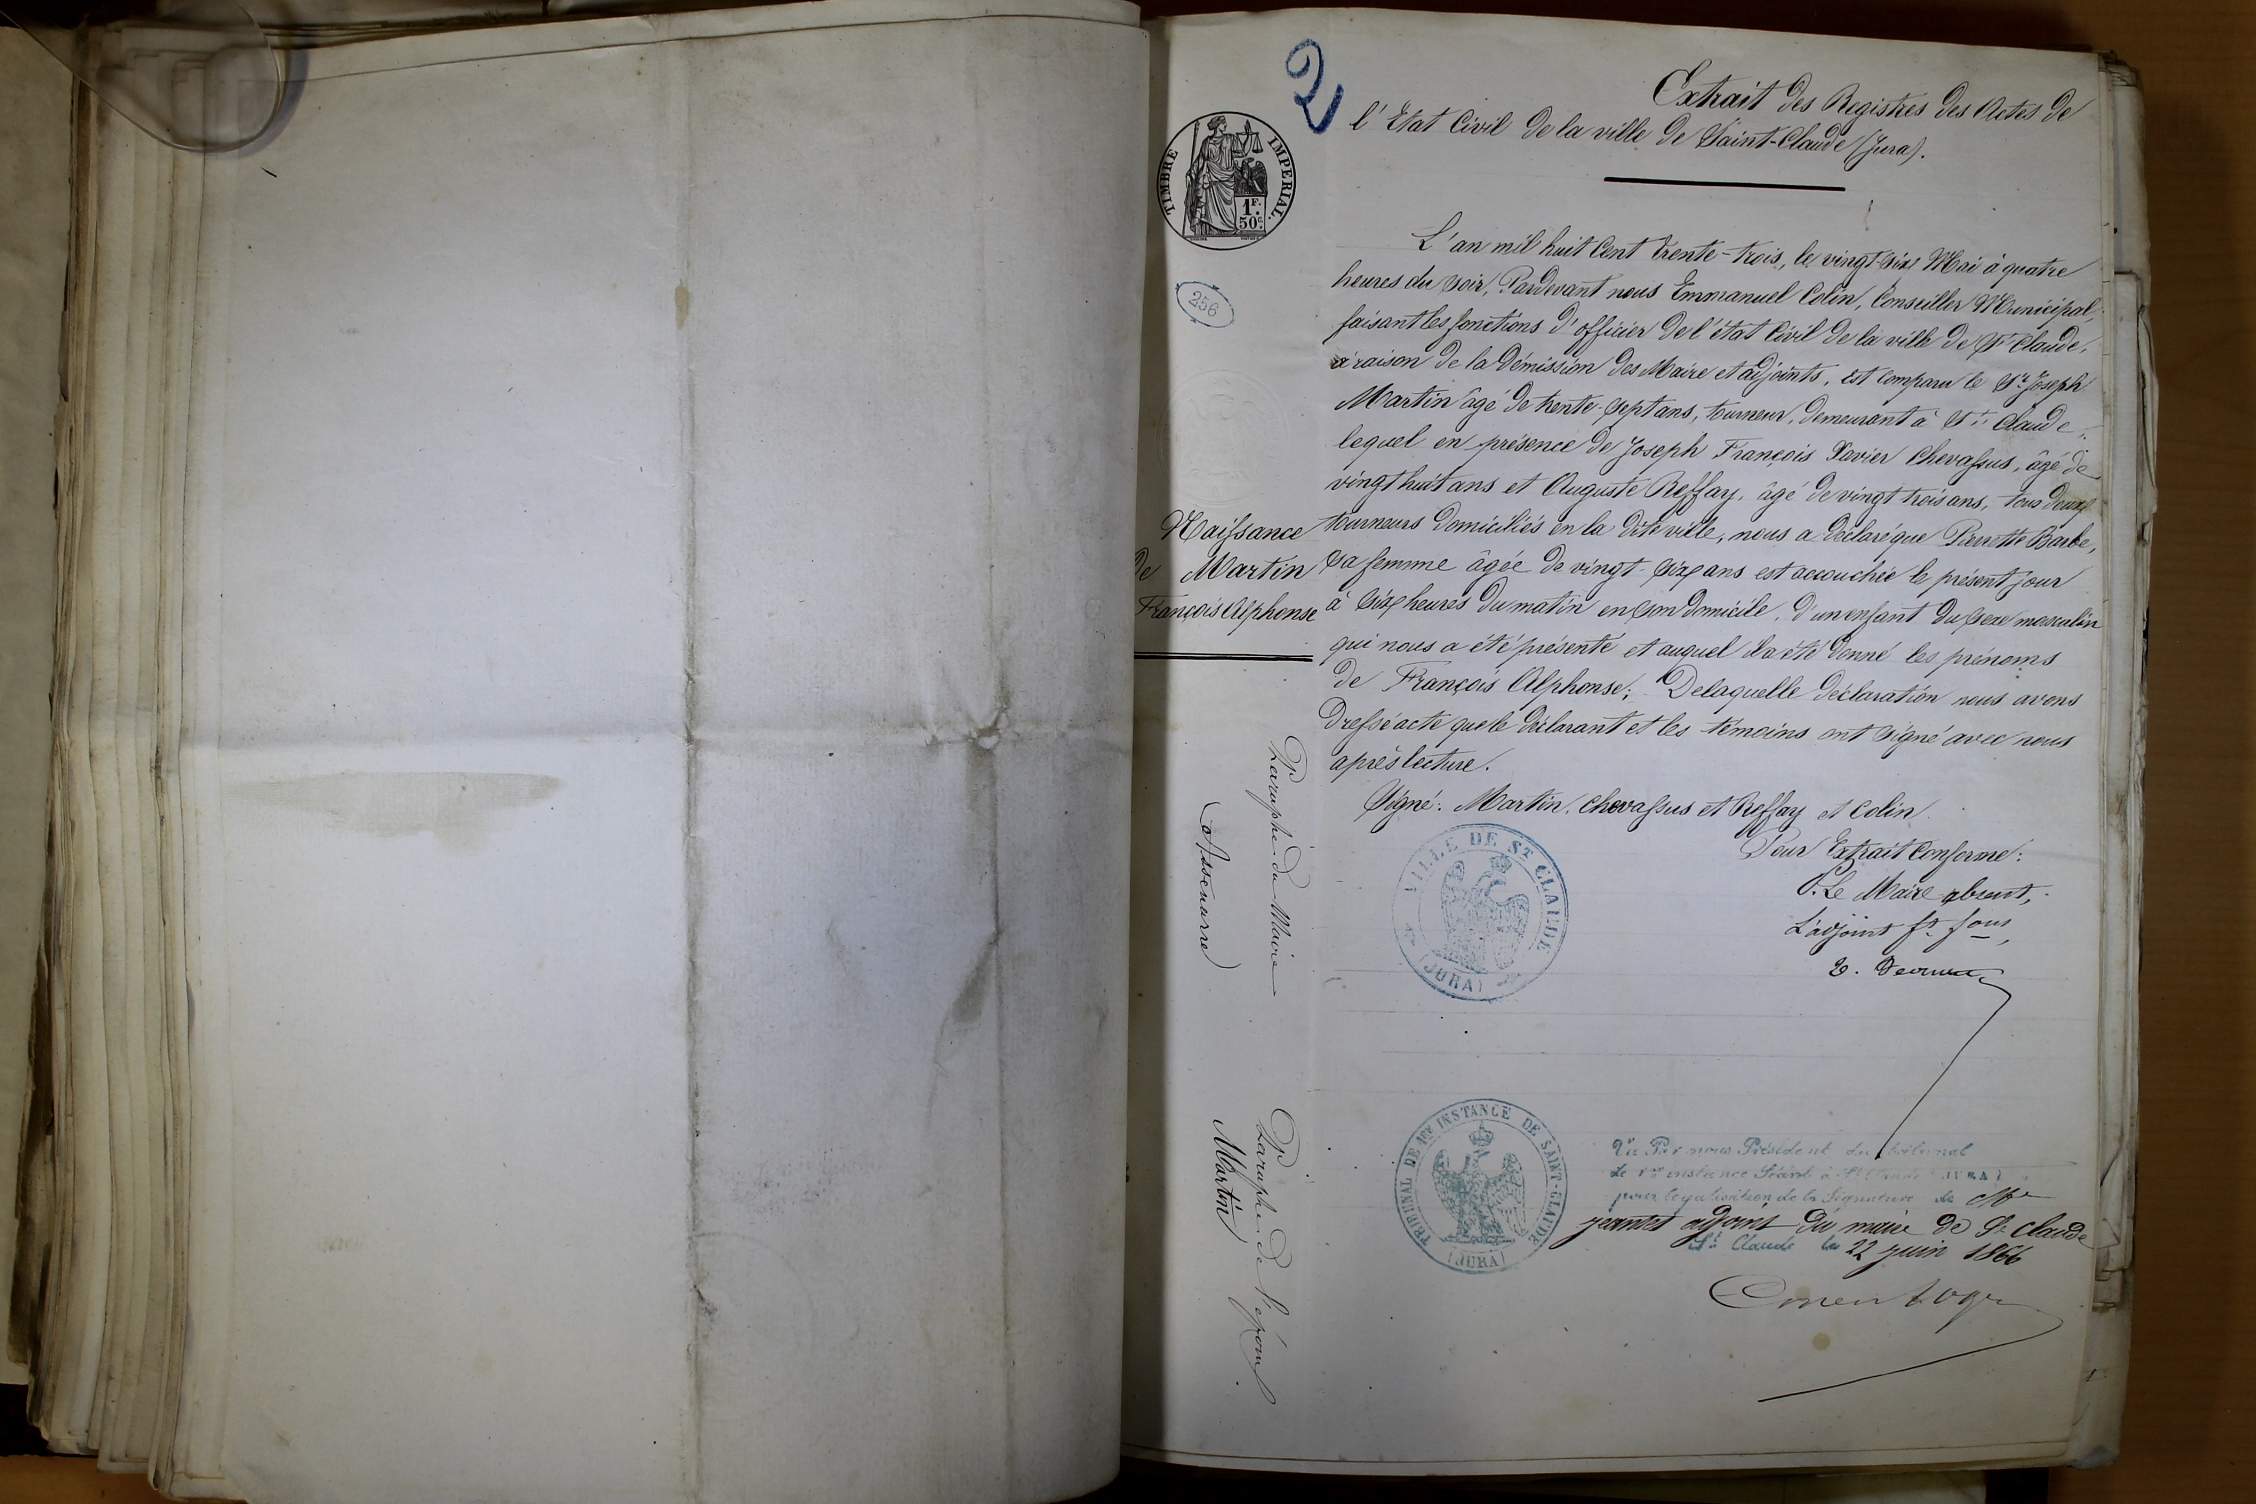 2
Extrait des Registres des Actes de
l'Etat Civil de la ville de Saint-Claude (Jura).
TIMBRE IMPERIAL.
1F. 50c.
256
L'an mil huit cent trente-trois, le vingt-six Mai à quatre
heures du soir, Pardevant nous Emmanuel Colin, Conseiller Municipal,
faisant les fonctions d'officier de l'état civil de la ville de St Claude,
à raison de la démission des Maire et adjoints, est comparu le Sr Joseph
Martin âgé de trente-sept ans, tourneur, demeurant à St Claude,
lequel en présence de Joseph François Xavier Chevassus, âgé de
vingt huit ans et Auguste Reffay, âgé de vingt trois ans, tous deux
tourneurs domiciliés en la dite ville, nous a déclaré que Pierrette Barbe,
sa femme âgée de vingt-six ans est accouchée le présent jour
à six heures du matin en son domicile, d'un enfant du sexe masculin
qui nous a été présenté et auquel il a été donné les prénoms
de François Alphonse; Delaquelle déclaration nous avons
dressé acte que le déclarant et les témoins ont signé avec nous
après lecture.
Signé: Martin, Chevassus et Reffay et Colin.
Naissance
de Martin
François Alphonse
Pour Extrait Conforme:
P. Le Maire absent,
L'adjoint ft. fons,
VILLE DE ST CLAUDE
(JURA)
Paraphe du Maire
Paraphe de l'époux
Martin)
TRIBUNAL DE 1RE INSTANCE DE SAINT-CLAUDE
(JURA)
Vu Par nous Président du tribunal
de 1re instance Séant à St Claude (JURA)
pour légalisation de la Signature de Mr
adjoint du maire de St Claude
St Claude le 22 juin 1866